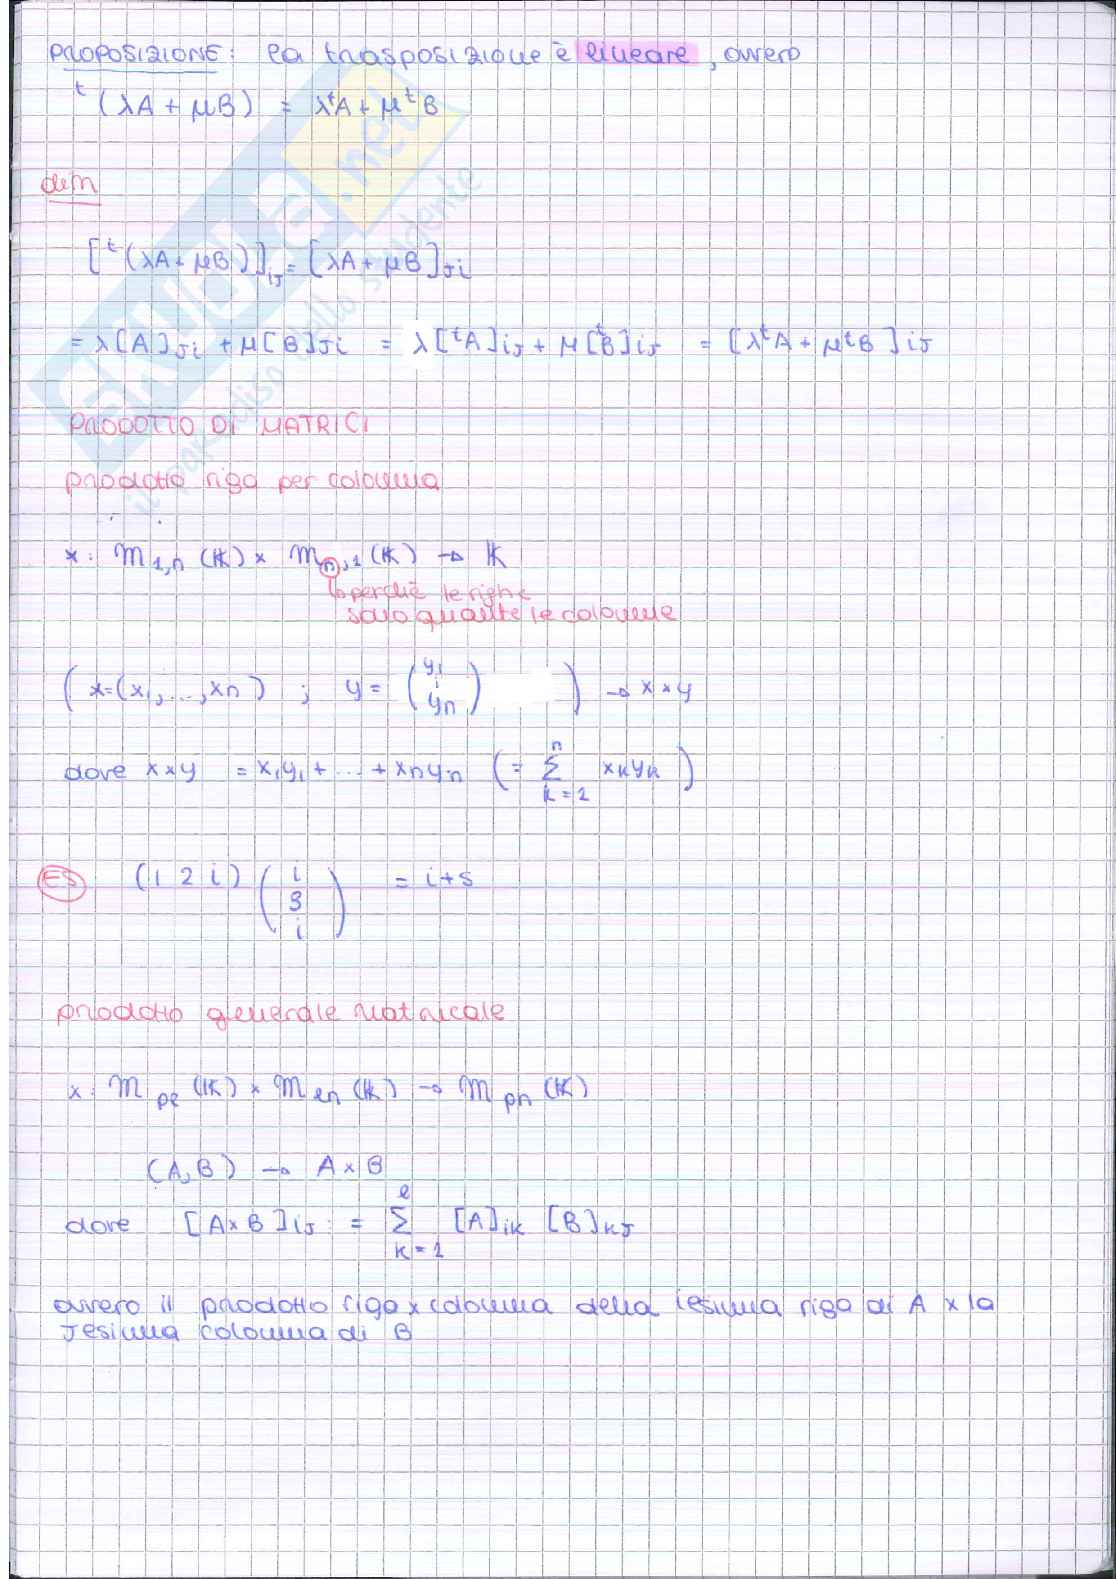 PROPOSIZIONE: la trasposizione è lineare, ovvero
ᵗ(λA + μB) = λᵗA + μᵗB
dim
[ᵗ(λA + μB)]ᵢⱼ = [λA + μB]ⱼᵢ
= λ[A]ⱼᵢ + μ[B]ⱼᵢ = λ[ᵗA]ᵢⱼ + μ[ᵗB]ᵢⱼ = [λᵗA + μᵗB]ᵢⱼ
PRODOTTO DI MATRICI
prodotto riga per colonna
×: M₁,ₙ(𝕂) × Mₙ,₁(𝕂) → 𝕂
↳ perchè le righe
sono quante le colonne
(x = (x₁, ..., xₙ) ; y = (y₁ ⋮ yₙ)) → x × y
dove x × y = x₁y₁ + ... + xₙyₙ (= Σ_{k=1}^{n} xₖyₖ)
ES (1 2 i) (i 3 i) = i+5
prodotto generale matriciale
×: M_{pl}(𝕂) × M_{ln}(𝕂) → M_{pn}(𝕂)
(A,B) → A × B
dove [A×B]ᵢⱼ = Σ_{k=1}^{l} [A]ᵢₖ [B]ₖⱼ
ovvero il prodotto riga × colonna della iesima riga di A × la
jesima colonna di B
skuola.net
il paradiso dello studente